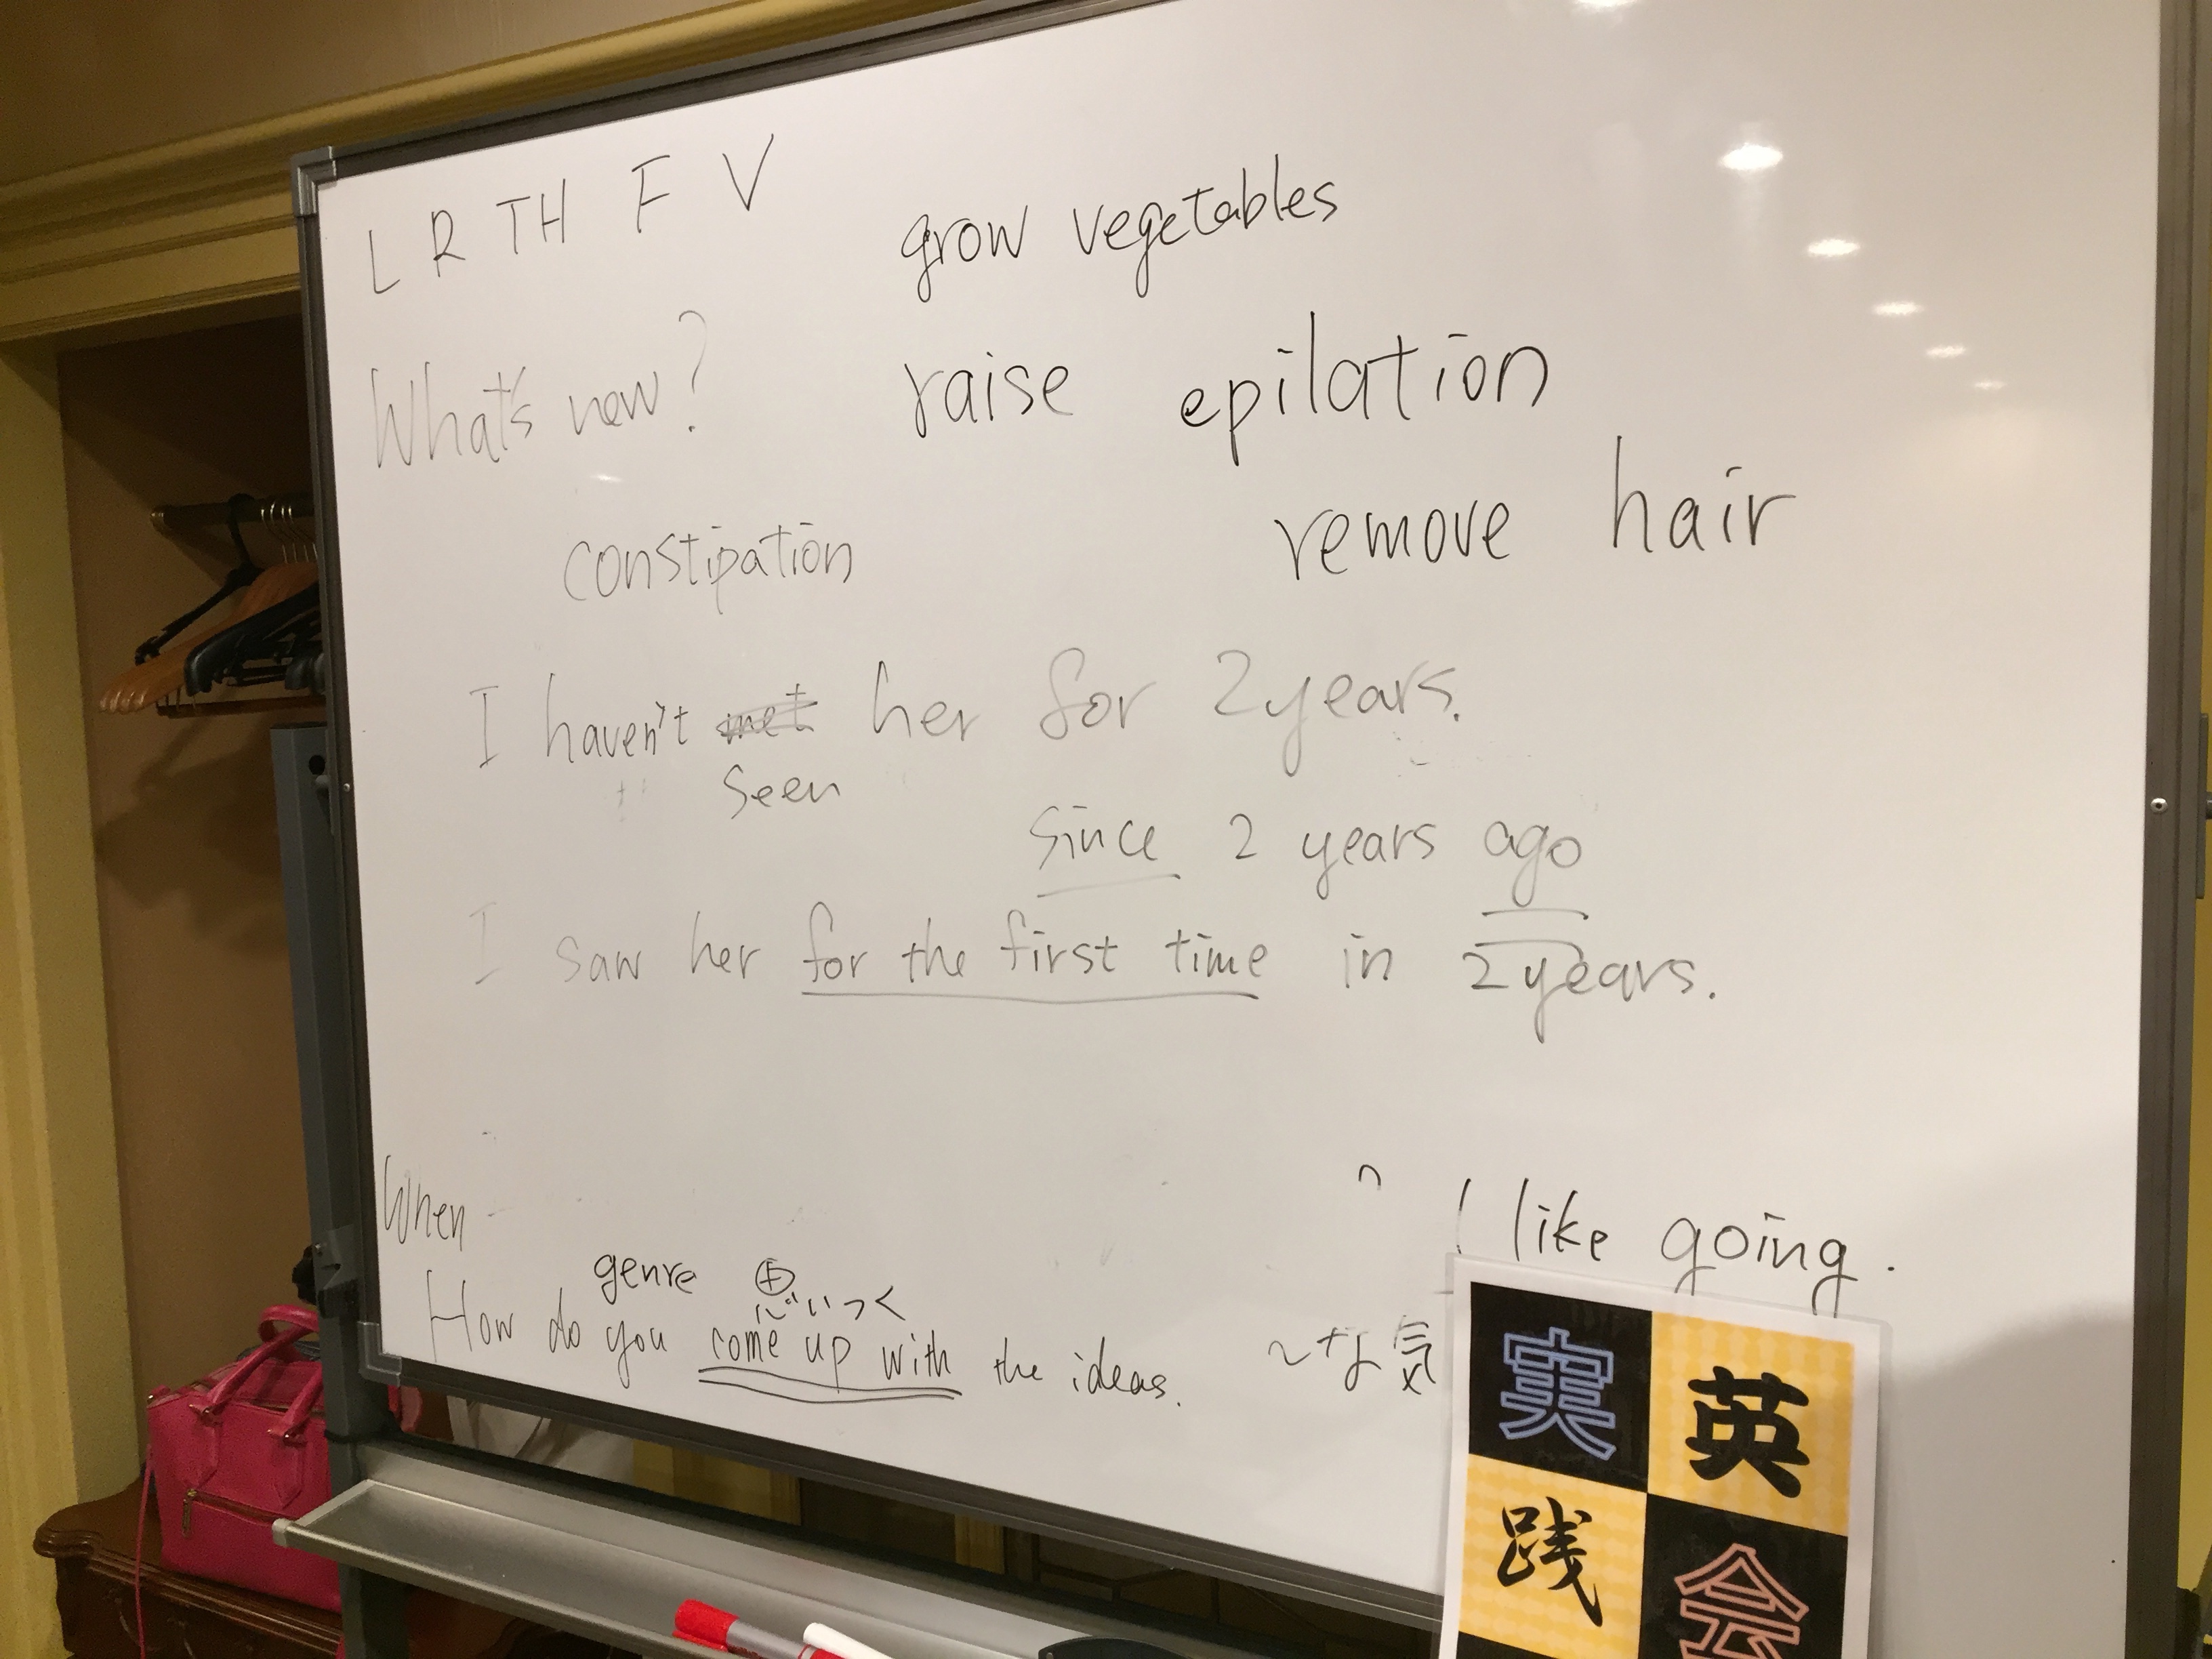 L R TH F V
grow vegetables
What's new?
raise epilation
remove hair
constipation
I haven't met her for 2years.
seen
since 2 years ago
I saw her for the first time in 2years.
When
I like going.
genre
How do you come up with the ideas.
〜な気
実 英
践 会